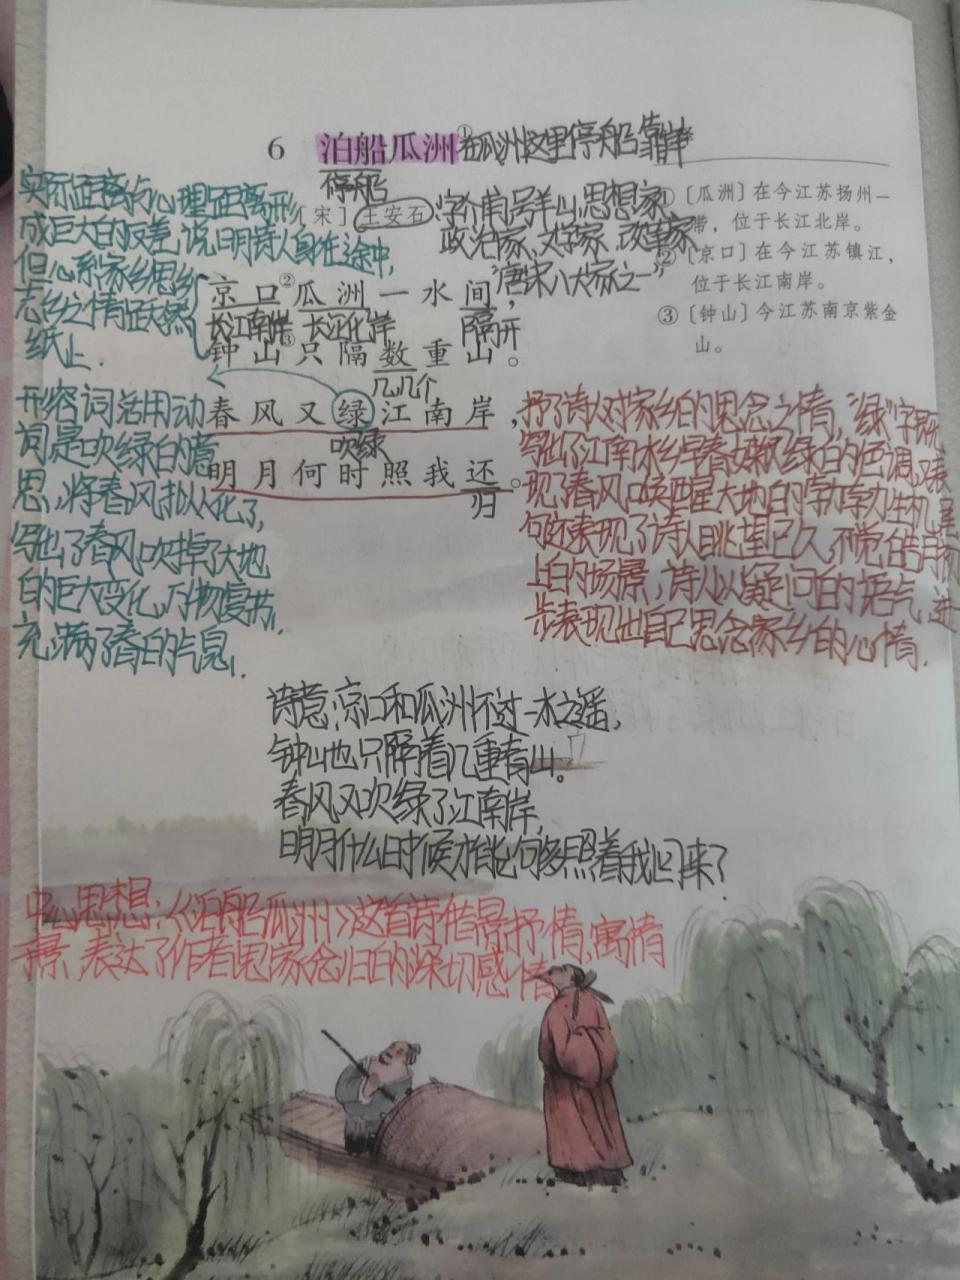 6 泊船瓜洲① 在瓜洲这里停船靠岸
停船
[宋] 王安石 字介甫,号半山,思想家
政治家、文学家、改革家
“唐宋八大家之一”
① 〔瓜洲〕在今江苏扬州一
带，位于长江北岸。
② 〔京口〕在今江苏镇江，
位于长江南岸。
③ 〔钟山〕今江苏南京紫金
山。
实际距离与心理距离形
成巨大的反差,说明诗人身在途中,
但心系家乡思乡
恋乡之情跃然
纸上.
京口②瓜洲一水间，
长江南岸 长江北岸 隔开
钟山③只隔数重山。
几几个
春风又绿江南岸，
吹绿
明月何时照我还。
归
形容词活用动
词是吹绿的意
思,将春风拟人化了,
写出了春风吹掉了大地
的巨大变化,万物复苏,
充满了春日的气息.
抒了诗人对家乡的思念之情,“绿”字既
写出了江南水乡早春嫩绿的色调,又表
现了春风唤醒大地的勃勃生机,
句还表现了诗人眺望已久,不觉皓月
上的场景,诗人以疑问的语气,进
步表现出自己思念家乡的心情.
诗意:京口和瓜洲不过一水之遥,
钟山也只隔着几重青山。
春风又吹绿了江南岸,
明月什么时候才能够照着我回来?
中心思想:《泊船瓜洲》这首诗借景抒情,寓情
于景,表达了作者思家念归的深切感情